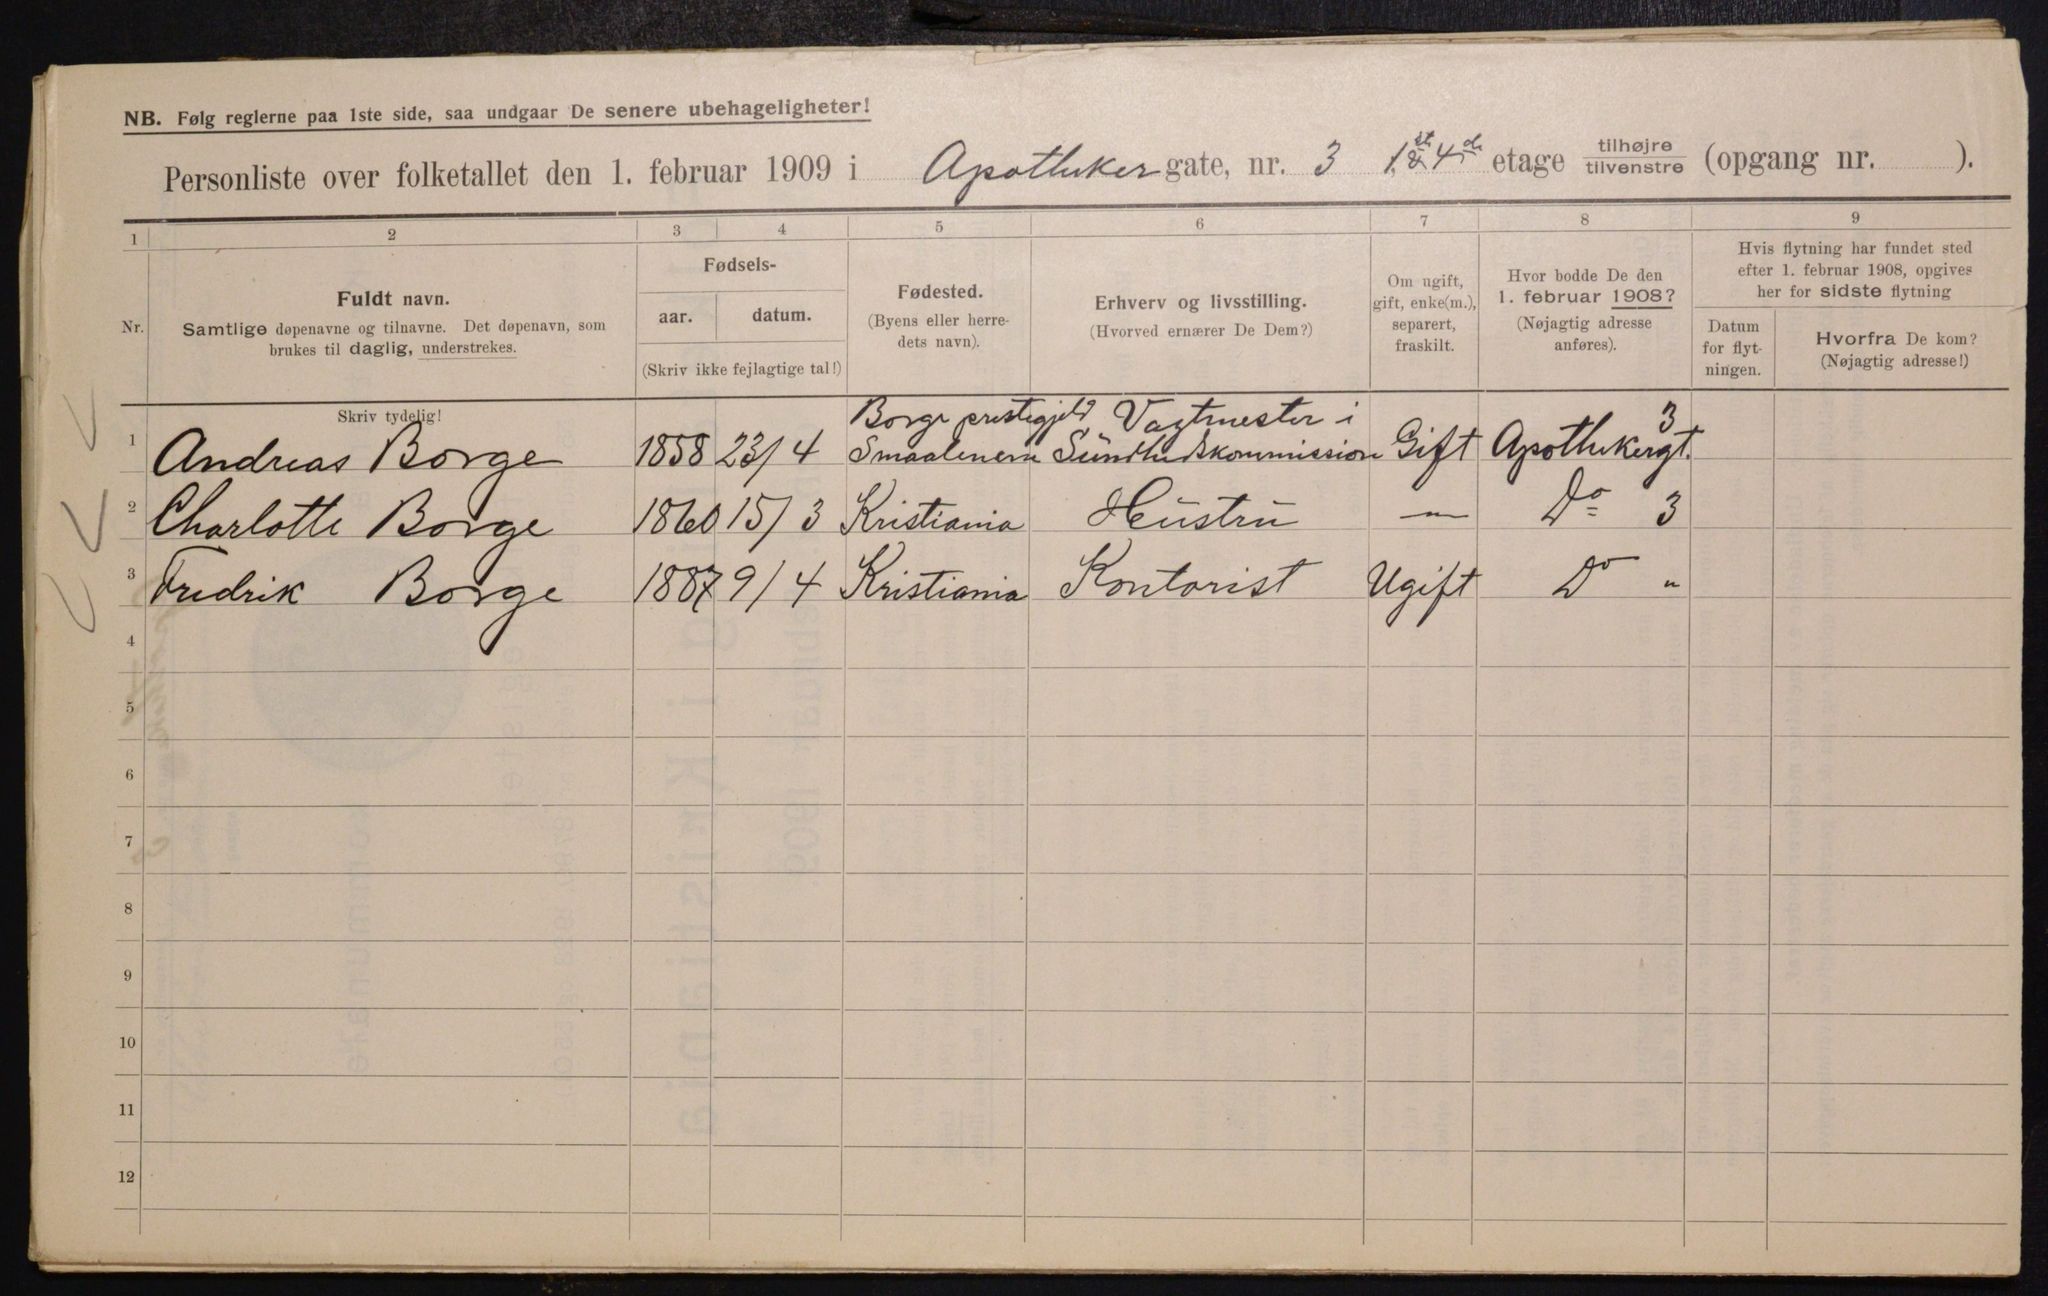 NB. Følg reglerne paa 1ste side, saa undgaar De senere ubehageligheter!
Personliste over folketallet den 1. februar 1909 i Apotheker gate, nr. 3 1st & 4de etage tilhøjre/tilvenstre (opgang nr. ).
1 2 3 4 5 6 7 8 9
Nr.
Fuldt navn.
Samtlige døpenavne og tilnavne. Det døpenavn, som
brukes til daglig, understrekes.
Fødsels-
aar. datum.
(Skriv ikke fejlagtige tal!)
Fødested.
(Byens eller herre-
dets navn).
Erhverv og livsstilling.
(Hvorved ernærer De Dem?)
Om ugift,
gift, enke(m.),
separert,
fraskilt.
Hvor bodde De den
1. februar 1908?
(Nøjagtig adresse
anføres).
Hvis flytning har fundet sted
efter 1. februar 1908, opgives
her for sidste flytning
Datum
for flyt-
ningen.
Hvorfra De kom?
(Nøjagtig adresse!)
Skriv tydelig!
Borge prestegjeld Vagtmester i 3
1 Andreas Borge 1858 23/4 Smaalenene Sundhedskommission Gift Apothekergt.
2 Charlotte Borge 1860 15/3 Kristiania Hustru — Do 3
3 Fredrik Borge 1887 9/4 Kristiania Kontorist Ugift Do "
4
5
6
7
8
9
10
11
12